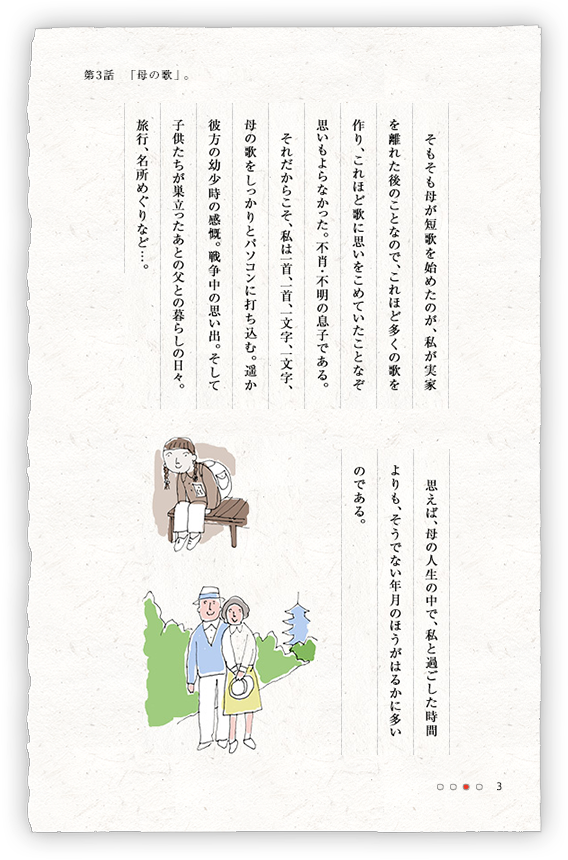 第3話　「母の歌」。
そもそも母が短歌を始めたのが、私が実家
を離れた後のことなので、これほど多くの歌を
作り、これほど歌に思いをこめていたことなぞ
思いもよらなかった。不肖・不明の息子である。
それだからこそ、私は一首、一首、一文字、一文字、
母の歌をしっかりとパソコンに打ち込む。遥か
彼方の幼少時の感慨。戦争中の思い出。そして
子供たちが巣立ったあとの父との暮らしの日々。
旅行、名所めぐりなど…。
思えば、母の人生の中で、私と過ごした時間
よりも、そうでない年月のほうがはるかに多い
のである。
3